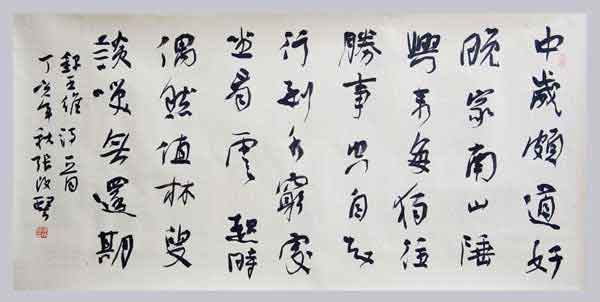 中歲頗道好
晚家南山陲
興來每獨往
勝事空自知
行到水窮處
坐看雲起時
偶然值林叟
談笑無還期
錄王維詩一首
丁亥年秋張改琴